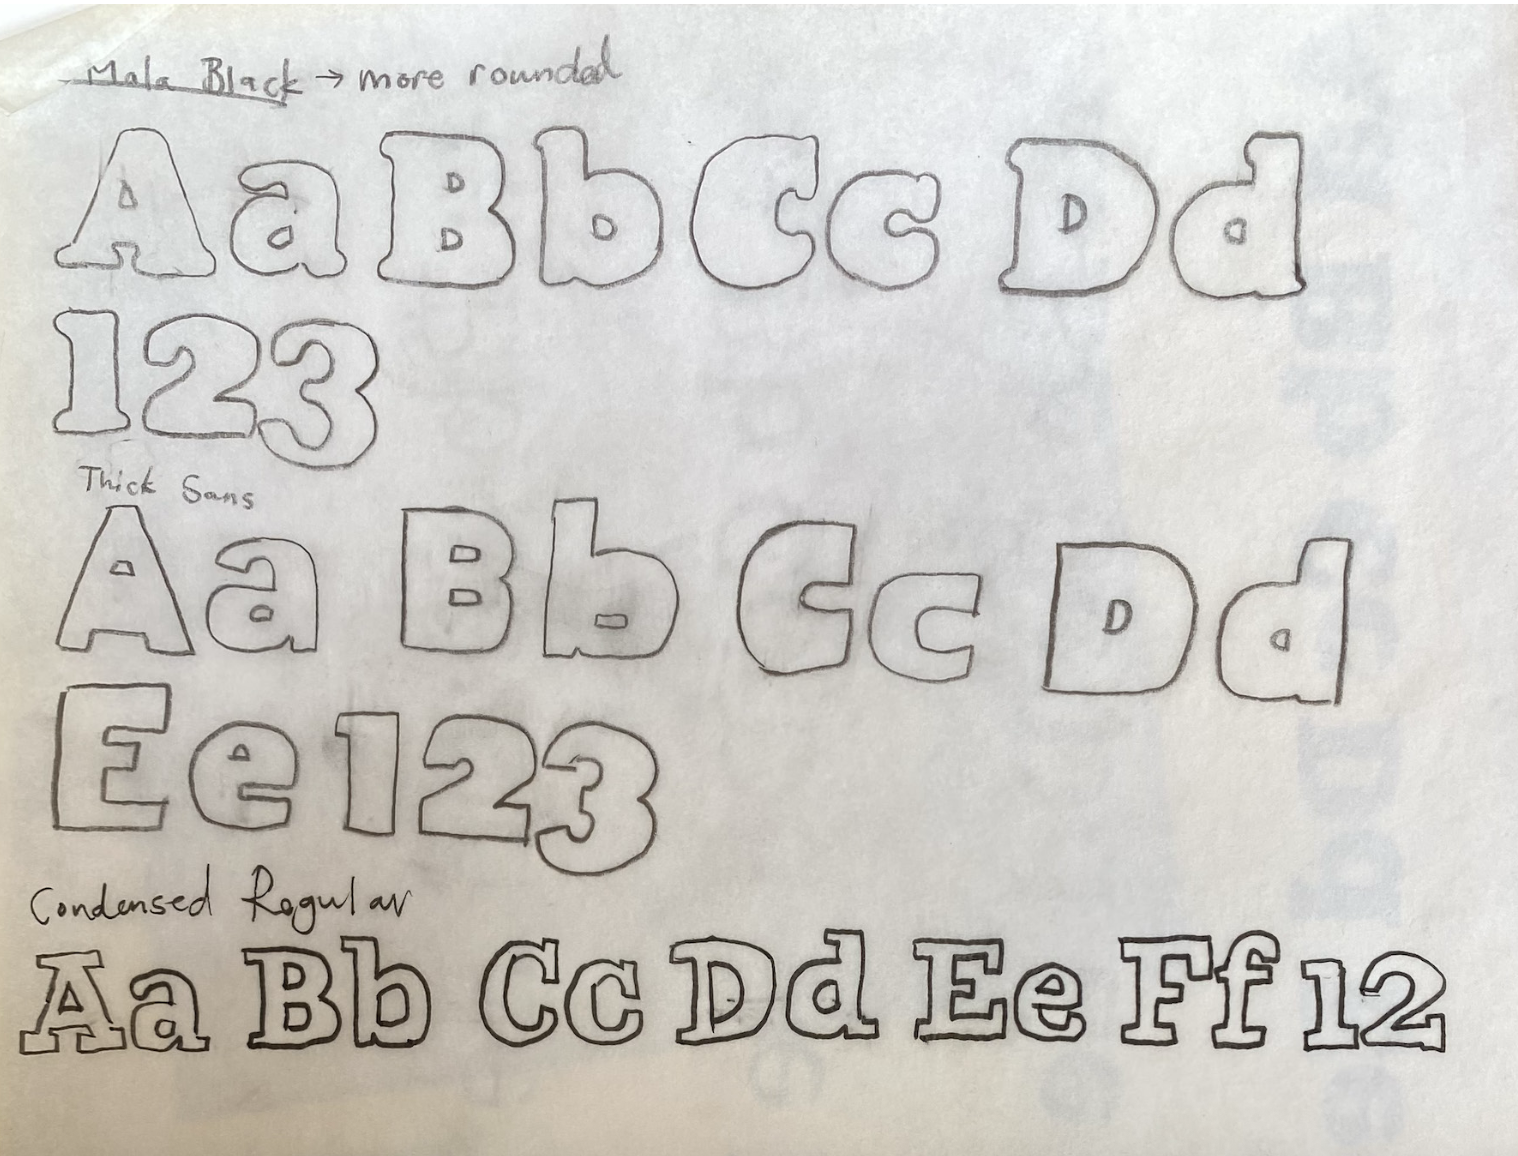 Mala Black → more rounded
Aa Bb Cc Dd
123
Thick Sans
Aa Bb Cc Dd
Ee 123
Condensed Regular
Aa Bb Cc Dd Ee Ff 12